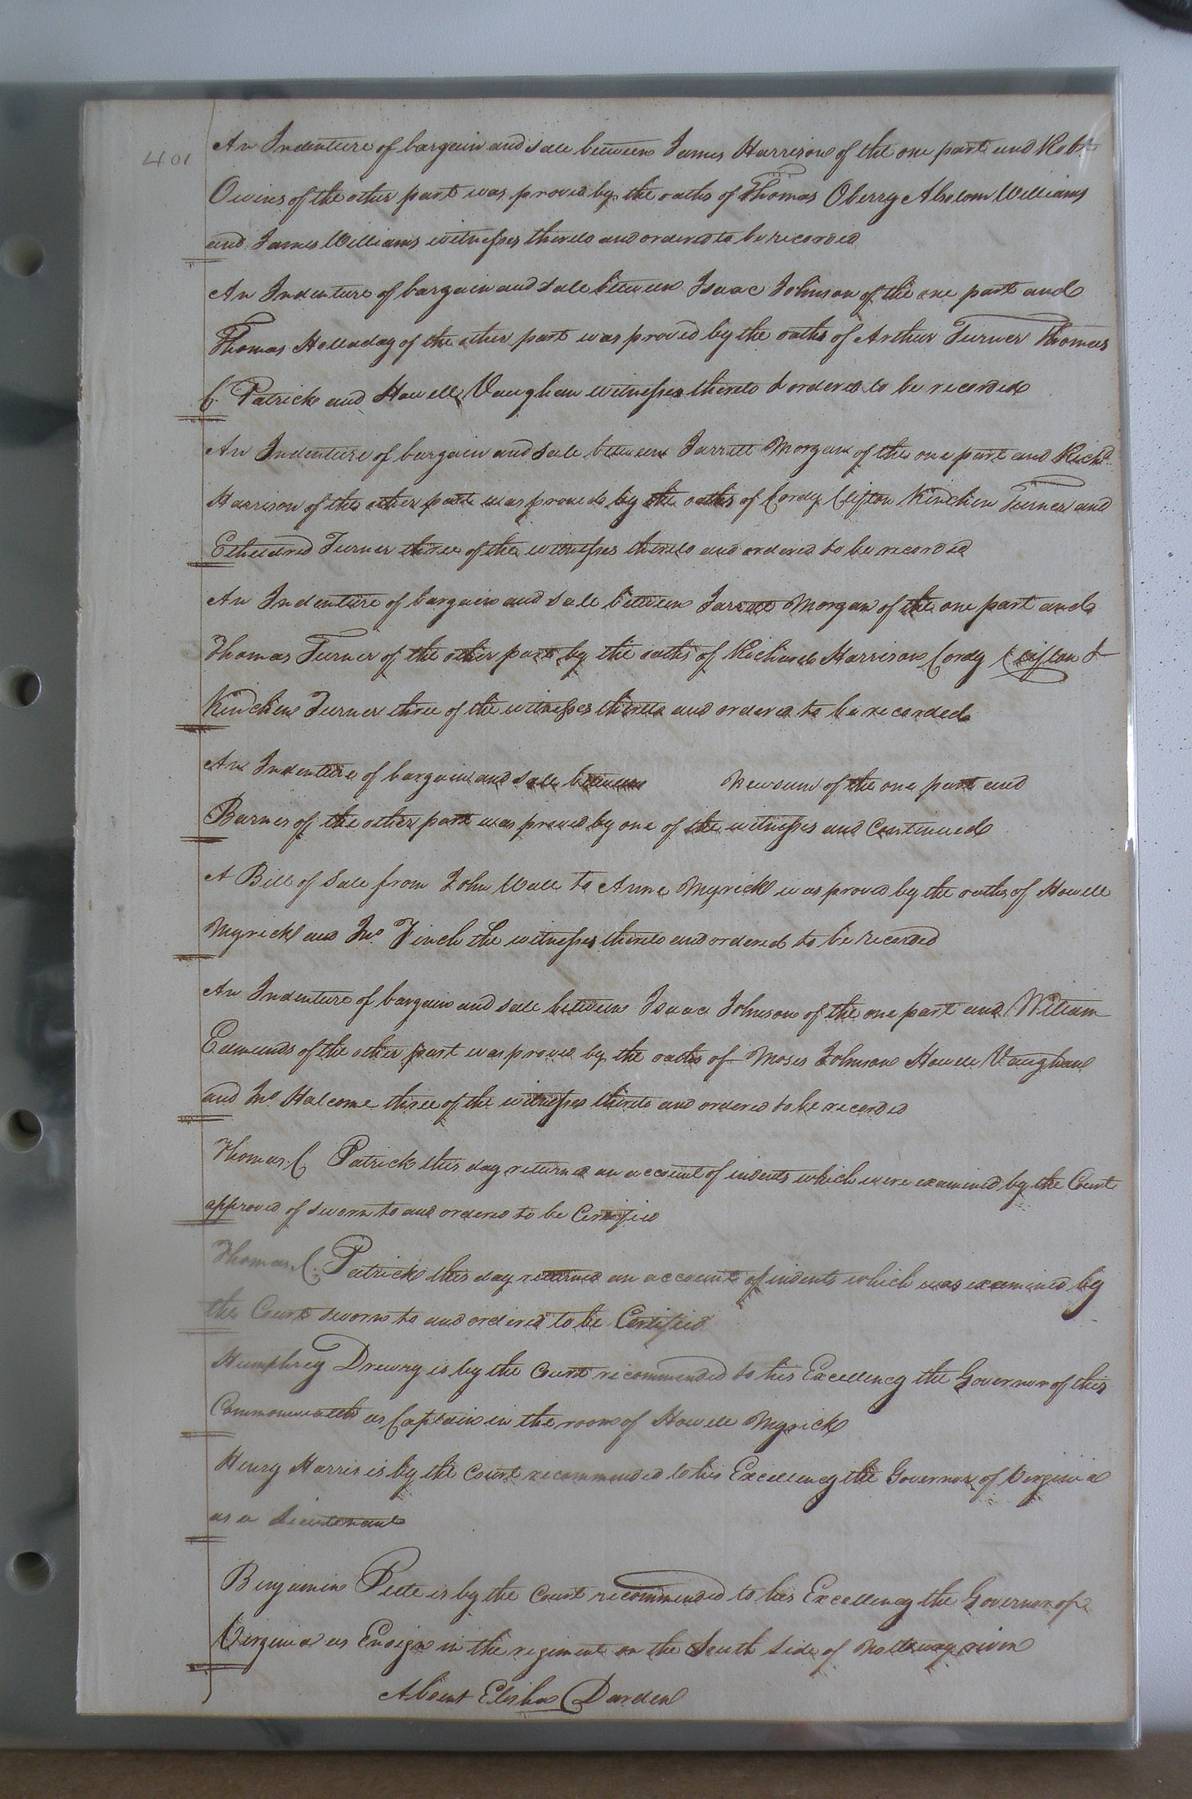 401
An Indenture of bargain and sale between James Harrison of the one part and Robt
Owins of the other part was proved by the oaths of Thomas Oberry Absolom Williams
and James Williams witnesses thereto and ordered to be recorded
An Indenture of bargain and sale between Isaac Johnson of the one part and
Thomas Holladay of the other part was proved by the oaths of Arthur Turner Thomas
C. Patrick and Howell Vaughan witnesses thereto & ordered to be recorded
An Indenture of bargain and sale between Jarrett Morgan of the one part and Richd
Harrison of the other part was proved by the oaths of Cordy Clifton Kinchen Turner and
Etheldred Turner three of the witnesses thereto and ordered to be recorded
An Indenture of bargain and sale between Jarrett Morgan of the one part and
Thomas Turner of the other part by the oaths of Richard Harrison Cordy Clifton &
Kinchen Turner three of the witnesses thereto and ordered to be recorded
An Indenture of bargain and sale between Newsum of the one part and
Barnes of the other part was proved by one of the witnesses and Continued
A Bill of Sale from John Wall to Anne Myrick was proved by the oaths of Howell
Myrick and Jno Finch the witnesses thereto and ordered to be recorded
An Indenture of bargain and sale between Isaac Johnson of the one part and William
Edmunds of the other part was proved by the oaths of Moses Johnson Howell Vaughan
and Jno Halcome three of the witnesses thereto and ordered to be recorded
Thomas C Patrick this day returned an account of indents which were examined by the Court
approved of sworn to and ordered to be Certified
Thomas C. Patrick this day returned an account of indents which was examined by
the Court sworn to and ordered to be Certified
Humphrey Drewry is by the Court recommended to his Excellency the Governor of this
Commonwealth as Captain in the room of Howell Myrick
Henry Harris is by the Court recommended to his Excellency the Governor of Virginia
as a Lieutenant
Benjamin Pete is by the Court recommended to his Excellency the Governor of
Virginia as Ensign in the regiment on the South side of Nottoway river
Absent Elisha Darden